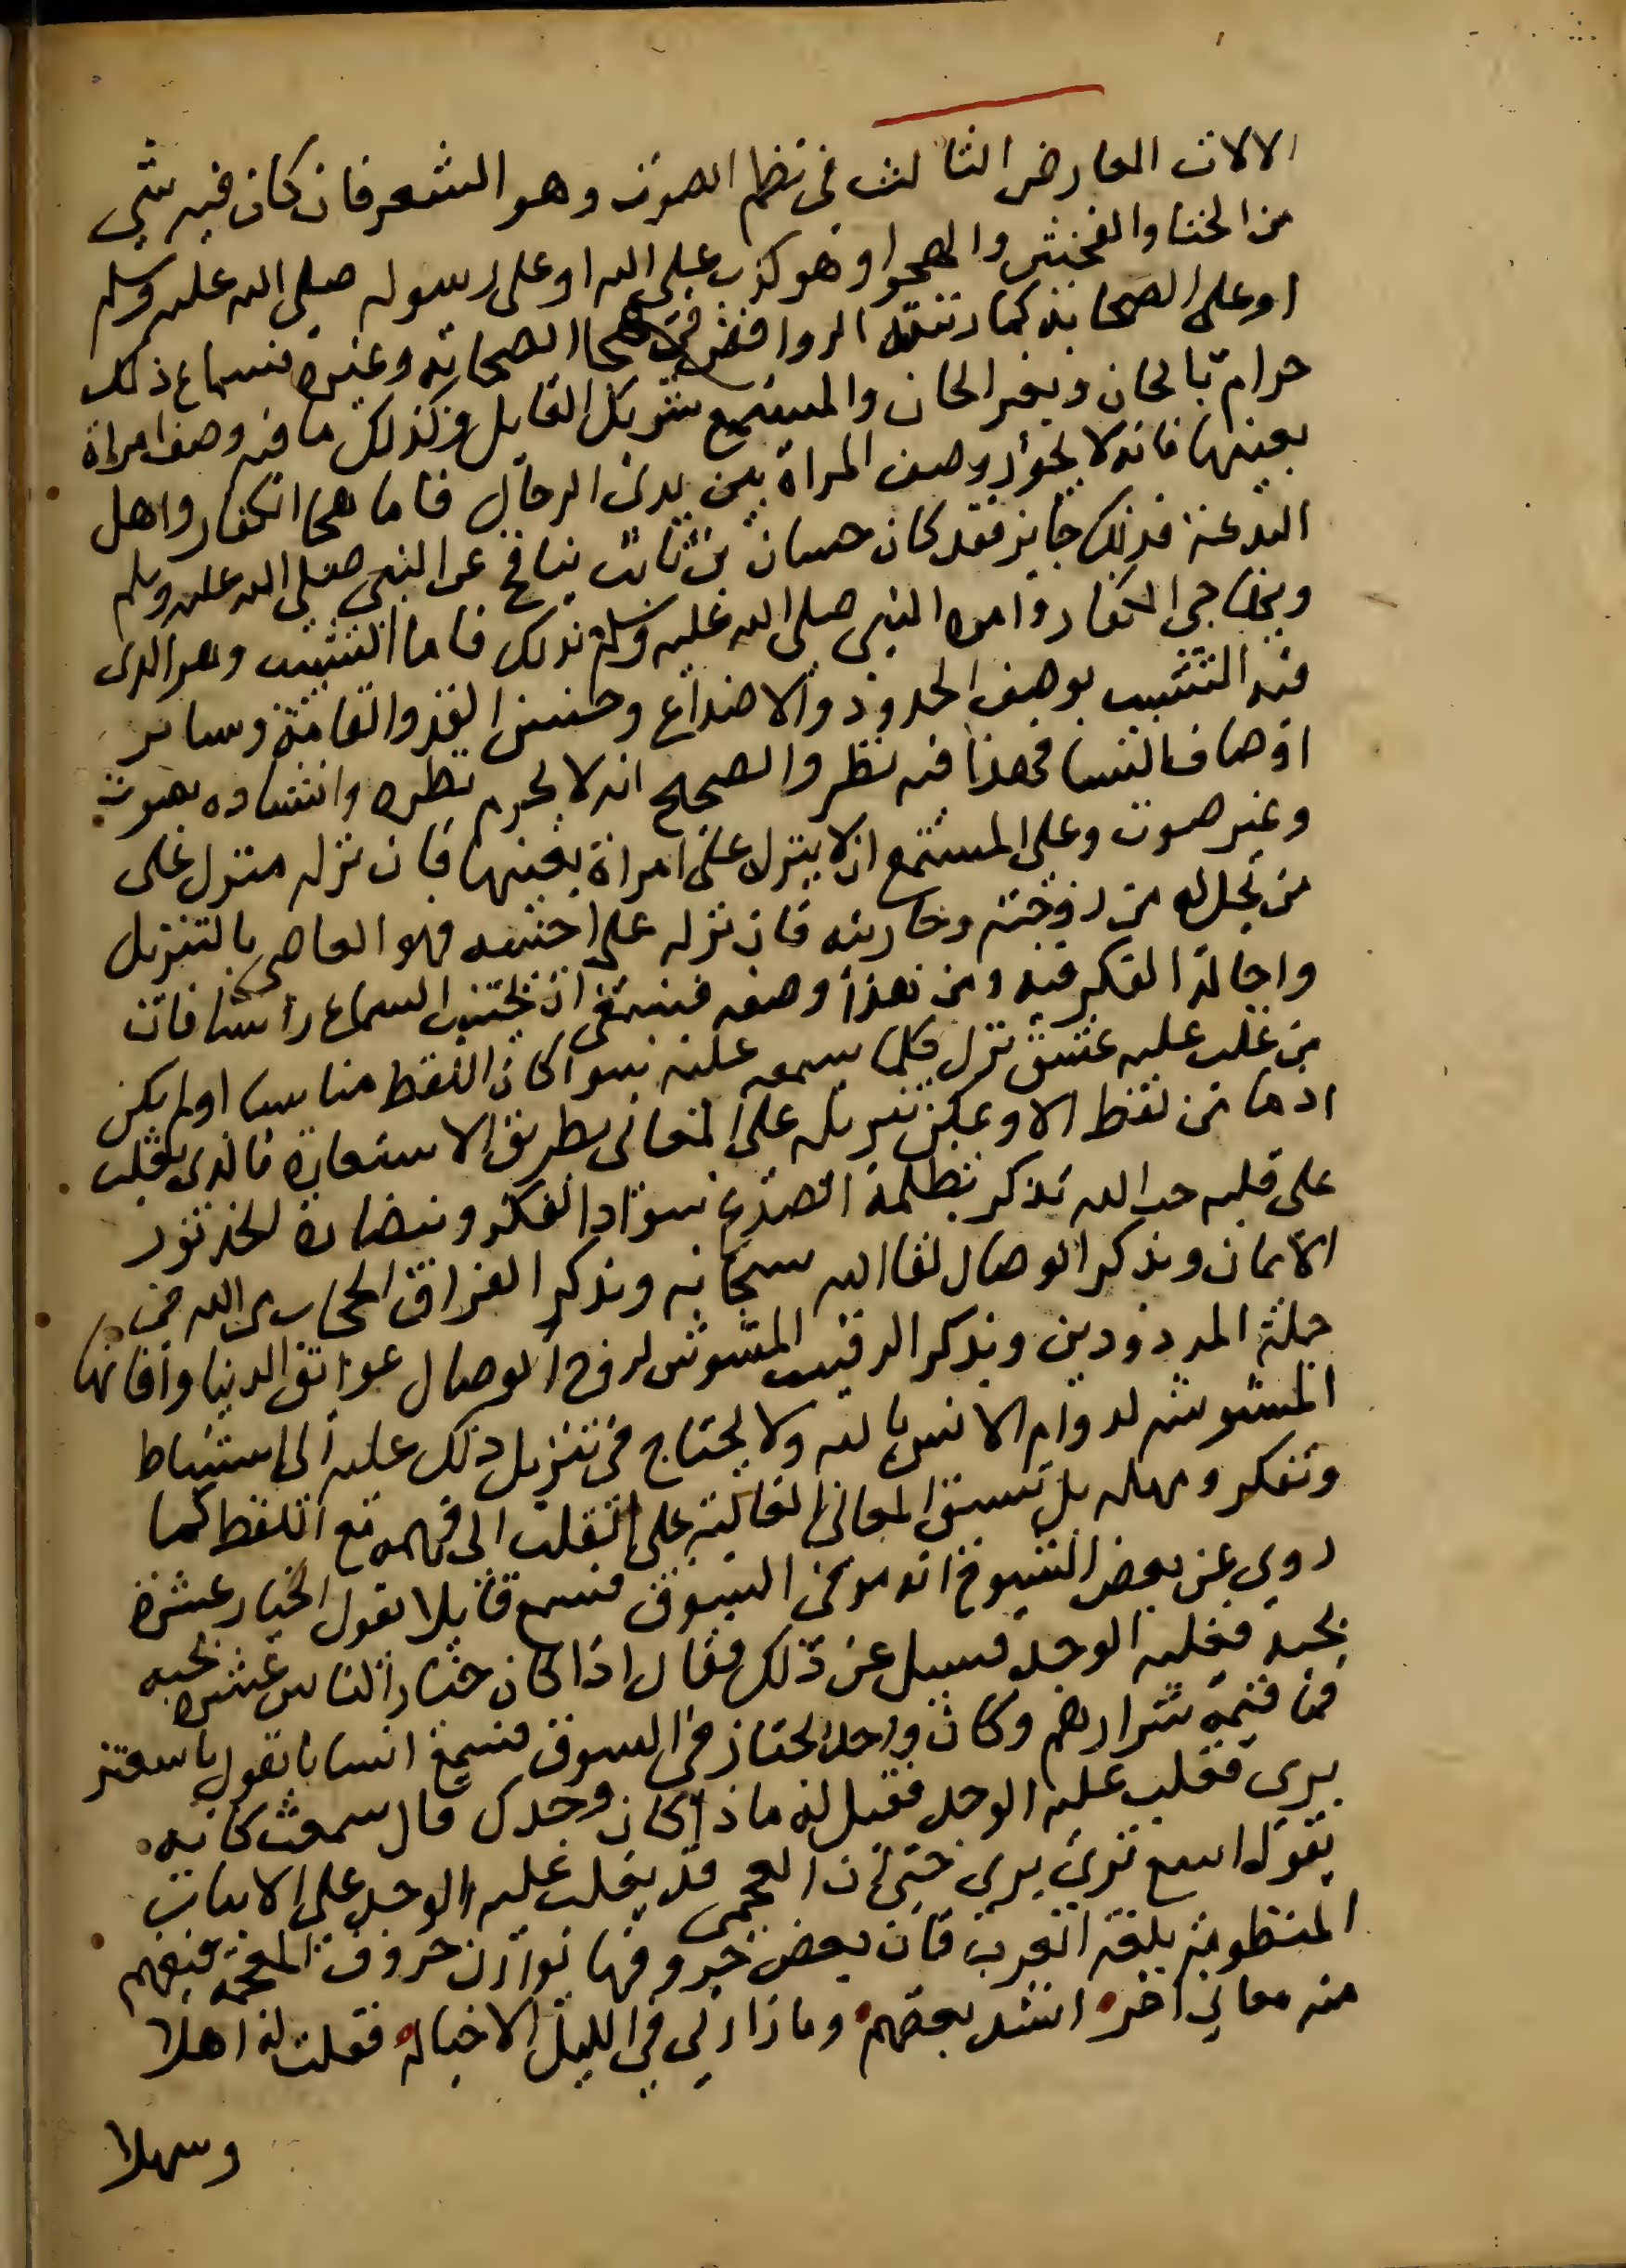 الالات العارض الثالث في نظم الصوت وهو الشعر فان كان فيه شي
من الخنا والفحش والهجو او هو كذب على الله او على رسوله صلى الله عليه وسلم
او على الصحابه كما رتبته الروافض في هجا الصحابه وغيرهم فسماع ذلك
حرام بالحان وبغير الحان والمستمع شريك القايل وكذلك ما فيه وصف امراة
بعينها فانه لا يجوز وصف المراة بين يدى الرجال فاما هجا الكفار واهل
البدعة فذلك جايز فقد كان حسان بن ثابت ينافح عن النبي صلى الله عليه وسلم
ويهاجى الكفار وامره النبي صلى الله عليه وسلم بذلك فاما التشبيب وهو الذى
فيه التشبيب بوصف الخدود والاصداغ وحسن القد والقامة وساير
اوصاف النسا فهذا فيه نظر والصحيح انه لا يحرم نظمه وانشاده بصوت
وغير صوت وعلى المستمع ان لا ينزله على امراة بعينها فان نزله منزل على
من تحل له من زوجته وجاريته فان نزله على اجنبيه فهو العاصي بالتنزيل
واجالة الفكر فيه ومن هذا وصفه فينبغي ان يجتنب السماع راسا فان
من غلب عليه عشق نزل كلما سمعه عليه سوا كان اللفظ مناسبا او لم يكن
اذ ما من لفظ الا ويمكن تنزيله على المعانى بطريق الاستعارة فالذى يغلب
على قلبه حب الله يذكر بظلمة الصدغ سواد الكفر وبنضارة الخد نور
الايمان وبذكر الوصال لقا الله سبحانه وبذكر الفراق الحجاب من الله في
جملة المردودين وبذكر الرقيب المشوش لروح الوصال عوائق الدنيا وافاتها
المشوشه لدوام الانس بالله ولا يحتاج في تنزيل ذلك عليه الى استنباط
وتفكر ومهله بل تسبق المعانى الغالبة على القلب الى فهمه مع اللفظ كما
روي عن بعض الشيوخ انه مر في السوق فسمع قايلا يقول الخيار عشرة
بحبة فغلبه الوجد فسيل عن ذلك فقال اذا كان خيار الناس عشرة بحبه
فما قيمة شرارهم وكان واحد يجتاز في السوق فسمع انسانا يقول يا سعتر
برى فغلب عليه الوجد فقيل له ماذا كان وجدك قال سمعت كانه
يقول اسع ترى برى حتى ان العجمى قد يغلب عليه الوجد على الابيات
المنظومة بلغة العرب فان بعض حروفها توازن حروف العجمة فيفهم
منه معاني اخر انشد بعضهم وما زارني في الليل الا خياله فقلت له اهلا
وسهلا